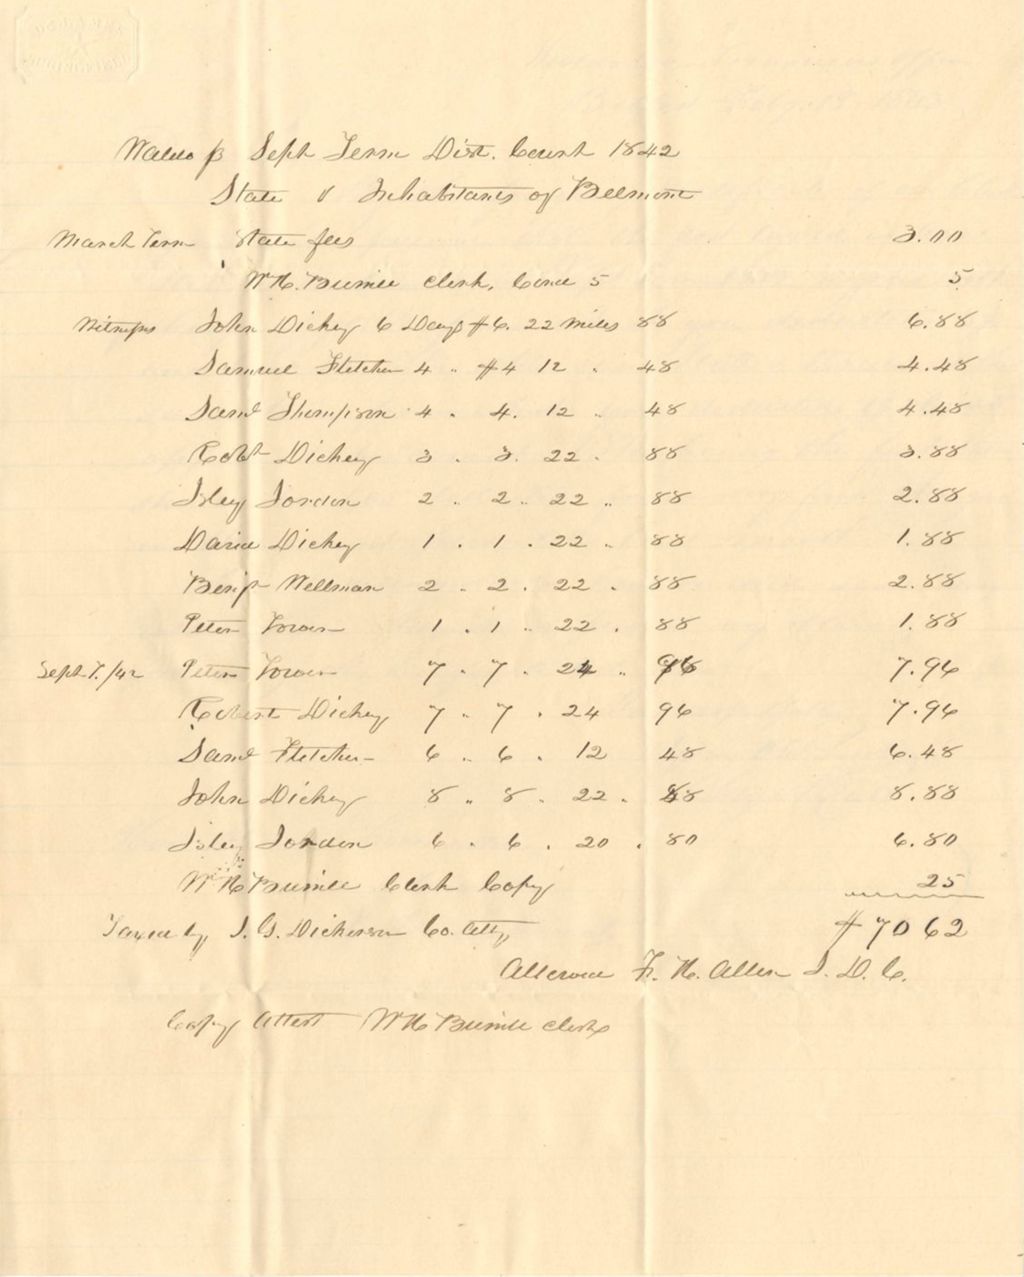 Waldo ss Sept Term Dist. Court 1842
State v Inhabitants of Belmont
March Term State fees 3.00
W H. Burrill clerk, Cone 5 5
Witnesses John Dickey 6 Days $6. 22 miles 88 6.88
Samuel Fletcher 4 " $4 12 " 48 4.48
Saml Thompson 4 " 4. 12 " 48 4.48
Robt Dickey 3 " 3. 22 " 88 3.88
Isley Jordon 2 " 2 " 22 " 88 2.88
David Dickey 1 " 1 " 22 " 88 1.88
Benj Wellman 2 " 2 " 22 " 88 2.88
Peter Tower 1 " 1 " 22 " 88 1.88
Sept T. /42 Peter Tower 7 " 7 " 24 " 96 7.96
Robert Dickey 7 " 7 " 24 96 7.96
Saml Fletcher 6 " 6 " 12 48 6.48
John Dickey 8 " 8 " 22 " 88 8.88
Isley Jordon 6 " 6 " 20 " 80 6.80
W H Burrill Clerk Copy 25
Taxed by J. G. Dickerson Co. Atty, $70 62
Allowed F. H. Allen J. D. C.
Copy Attest W H Burrill clerk